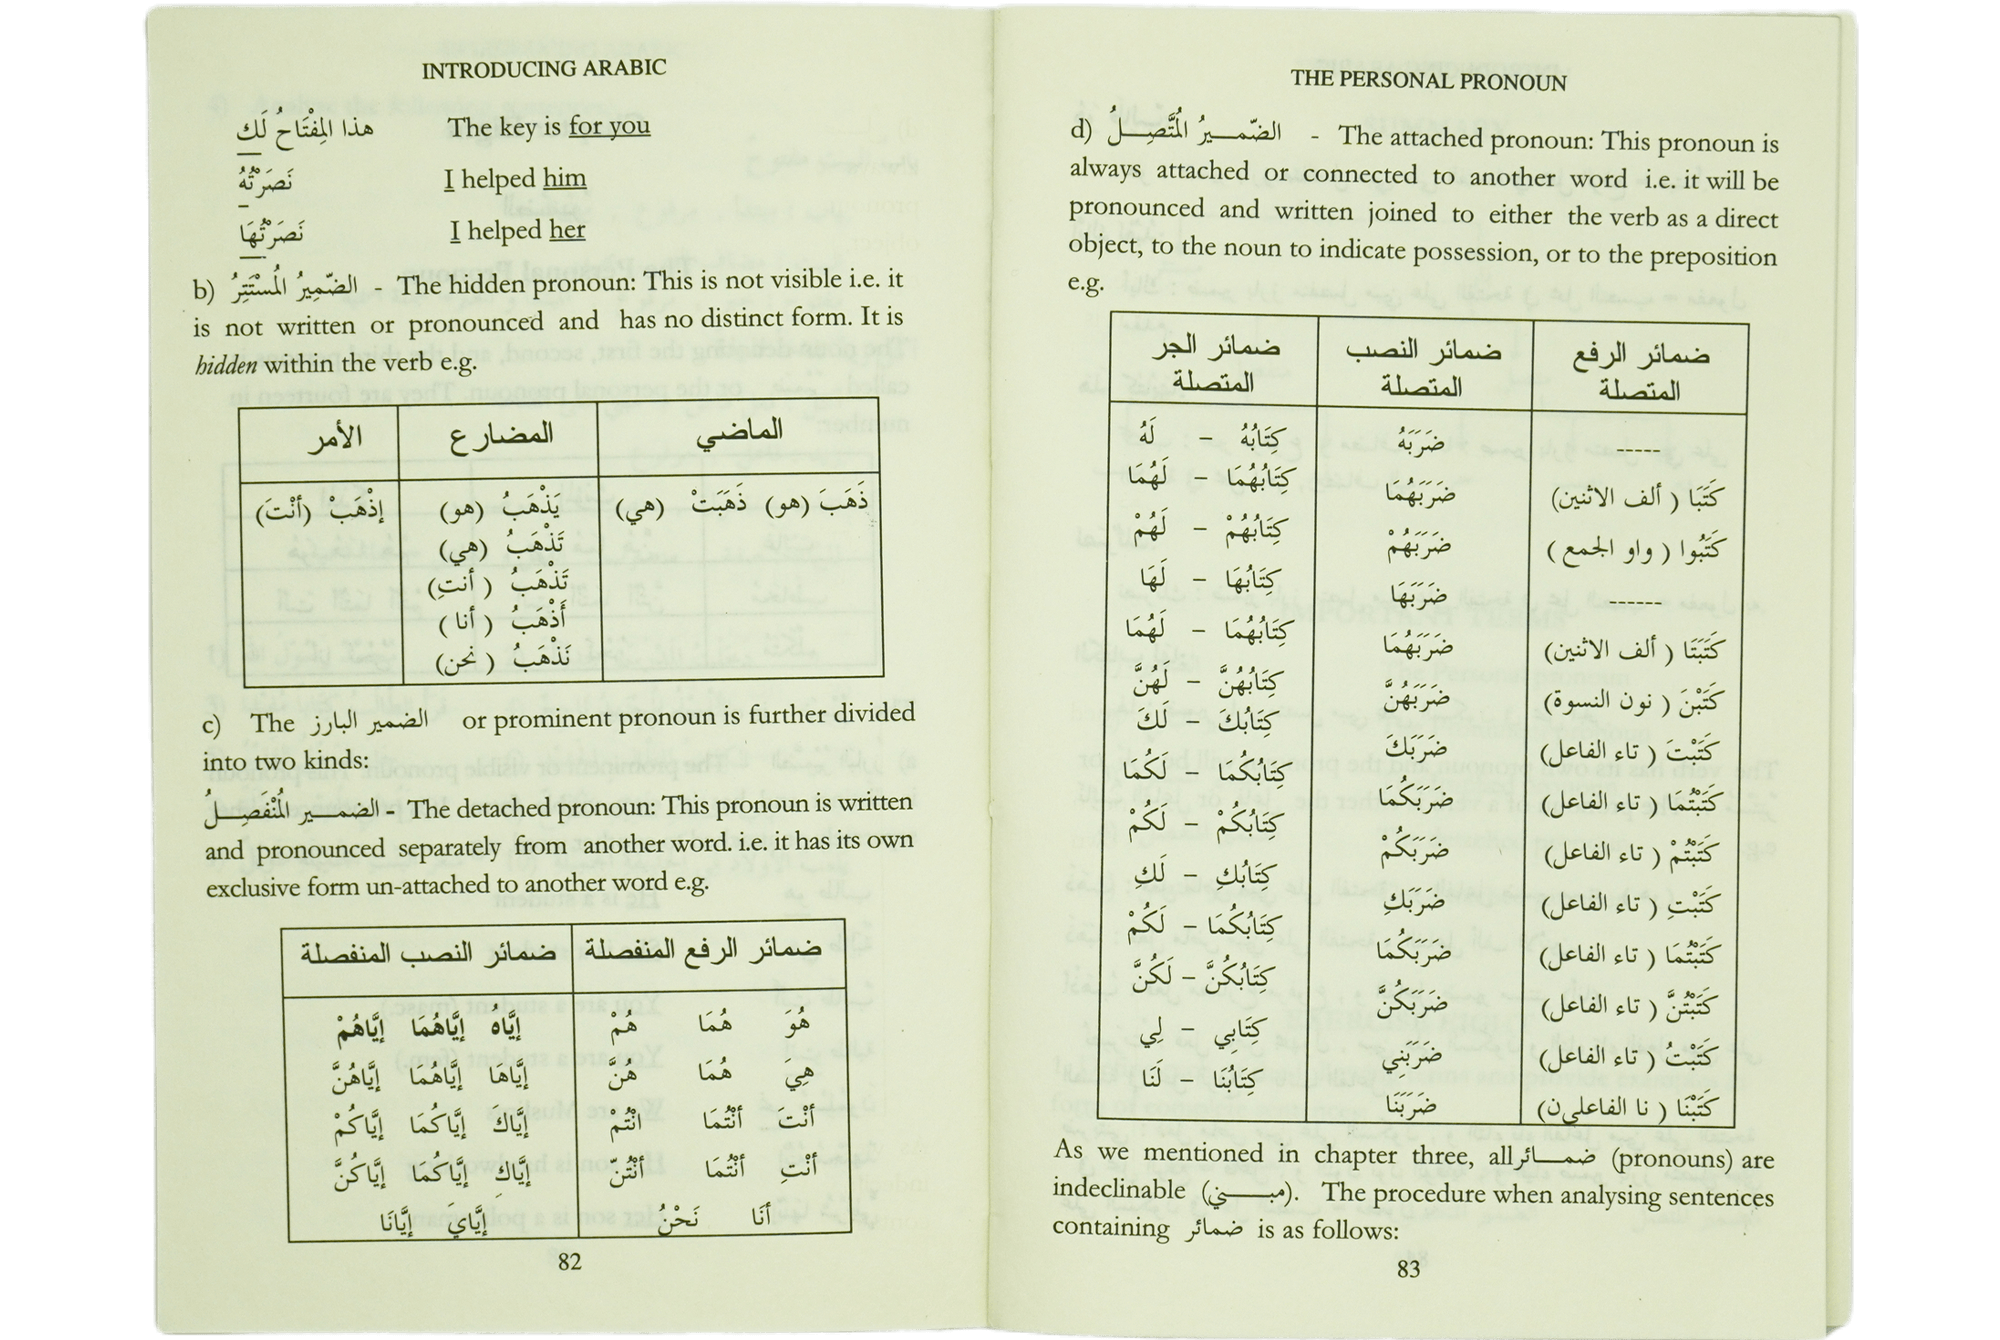 INTRODUCING ARABIC
هذا المِفْتَاحُ لَك The key is for you
نَصَرْتُهُ I helped him
نَصَرْتُهَا I helped her
b) الضّمِيرُ المُسْتَتِرُ - The hidden pronoun: This is not visible i.e. it
is not written or pronounced and has no distinct form. It is
hidden within the verb e.g.
الماضي المضارع الأمر
ذَهَبَ (هو) ذَهَبَتْ (هي) يَذْهَبُ (هو) إذْهَبْ (أنْتَ)
تَذْهَبُ (هي)
تَذْهَبُ (أنتِ)
أَذْهَبُ (أنا)
نَذْهَبُ (نحن)
c) The الضمير البارز or prominent pronoun is further divided
into two kinds:
الضمـــير المُنْفَصِـــلُ - The detached pronoun: This pronoun is written
and pronounced separately from another word. i.e. it has its own
exclusive form un-attached to another word e.g.
ضمائر الرفع المنفصلة ضمائر النصب المنفصلة
هُوَ هُمَا هُمْ إيَّاهُ إيَّاهُمَا إيَّاهُمْ
هِيَ هُمَا هُنَّ إيَّاهَا إيَّاهُمَا إيَّاهُنَّ
أنْتَ أنْتُمَا انْتُمْ إيَّاكَ إيَّاكُمَا إيَّاكُمْ
أنْتِ أنْتُمَا أنْتُنّ إيَّاكِ إيَّاكُمَا إيَّاكُنَّ
أنَا نَحْنُ إيَّايَ إيَّانَا
82
THE PERSONAL PRONOUN
d) الضّمـــيرُ المُتَّصِـــلُ - The attached pronoun: This pronoun is
always attached or connected to another word i.e. it will be
pronounced and written joined to either the verb as a direct
object, to the noun to indicate possession, or to the preposition
e.g.
ضمائر الرفع ضمائر النصب ضمائر الجر
المتصلة المتصلة المتصلة
------ ضَرَبَهُ كِتَابُهُ – لَهُ
كَتَبَا ( ألف الاثنين) ضَرَبَهُمَا كِتَابُهُمَا – لَهُمَا
كَتَبُوا ( واو الجمع ) ضَرَبَهُمْ كِتَابُهُمْ – لَهُمْ
------ ضَرَبَهَا كِتَابُهَا – لَهَا
كَتَبَتَا ( ألف الاثنين) ضَرَبَهُمَا كِتَابُهُمَا – لَهُمَا
كَتَبْنَ ( نون النسوة) ضَرَبَهُنَّ كِتَابُهُنَّ – لَهُنَّ
كَتَبْتَ ( تاء الفاعل) ضَرَبَكَ كِتَابُكَ – لَكَ
كَتَبْتُمَا ( تاء الفاعل) ضَرَبَكُمَا كِتَابُكُمَا – لَكُمَا
كَتَبْتُمْ ( تاء الفاعل) ضَرَبَكُمْ كِتَابُكُمْ – لَكُمْ
كَتَبْتِ ( تاء الفاعل) ضَرَبَكِ كِتَابُكِ – لَكِ
كَتَبْتُمَا ( تاء الفاعل) ضَرَبَكُمَا كِتَابُكُمَا – لَكُمْ
كَتَبْتُنَّ ( تاء الفاعل) ضَرَبَكُنَّ كِتَابُكُنَّ – لَكُنَّ
كَتَبْتُ ( تاء الفاعل) ضَرَبَنِي كِتَابِي – لِي
كَتَبْنَا ( نا الفاعلين) ضَرَبَنَا كِتَابُنَا – لَنَا
As we mentioned in chapter three, all ضمـــائر (pronouns) are
indeclinable (مبـــني). The procedure when analysing sentences
containing ضمائر is as follows:
83